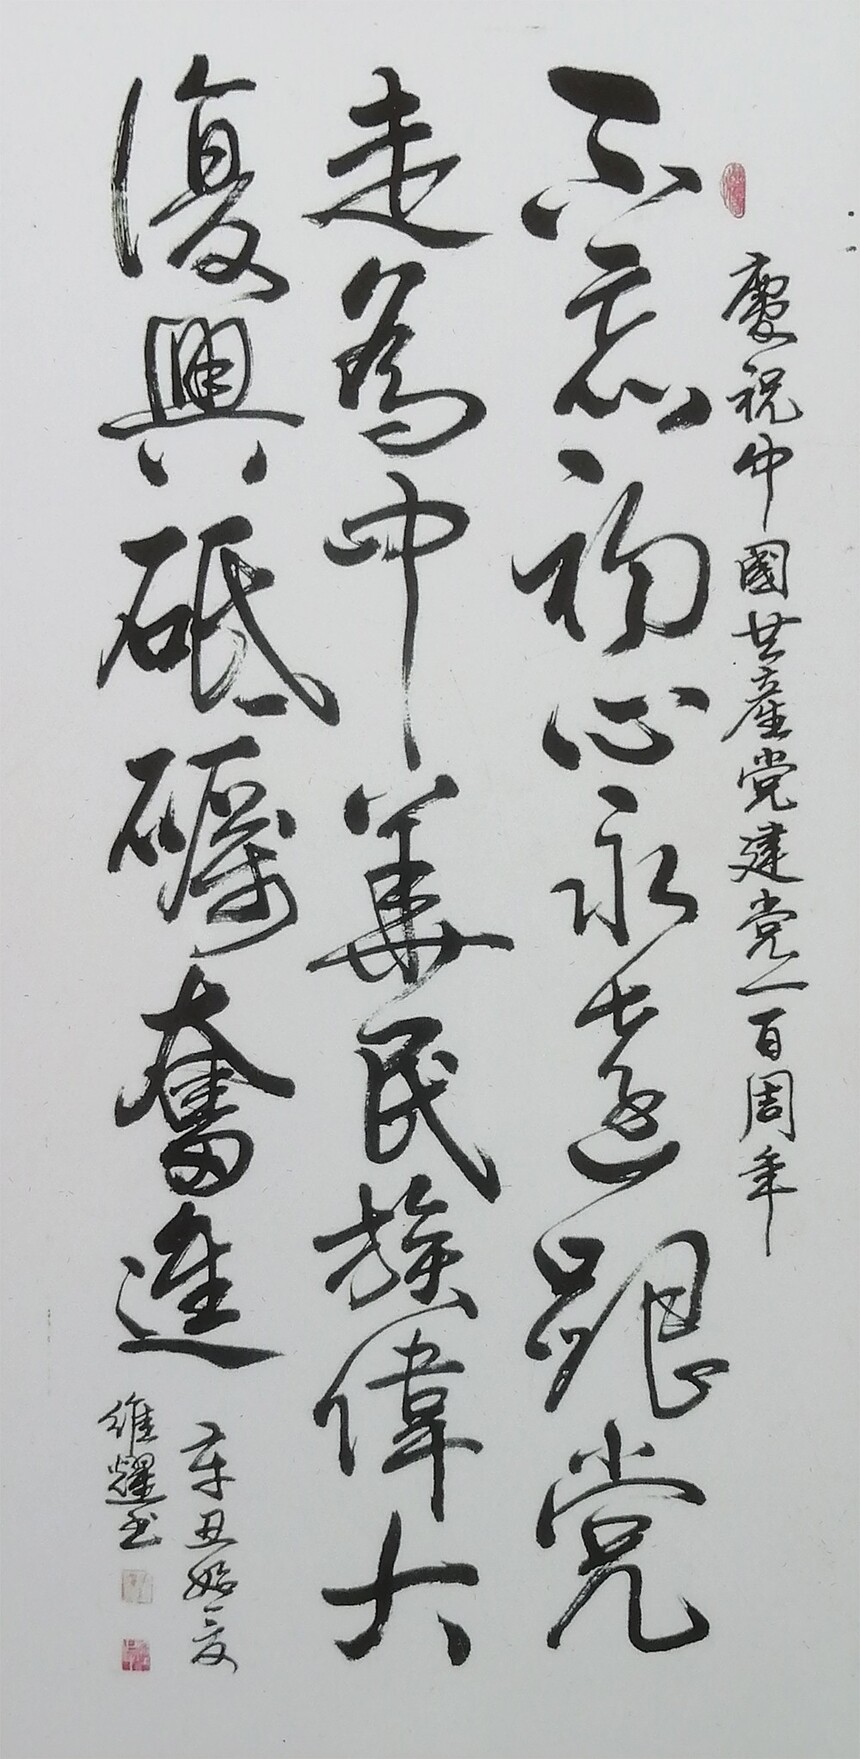 慶祝中國共産党建党一百周年
不忘初心永遠跟党
走為中華民族偉大
復興砥礪奮進
辛丑始夏
維耀书